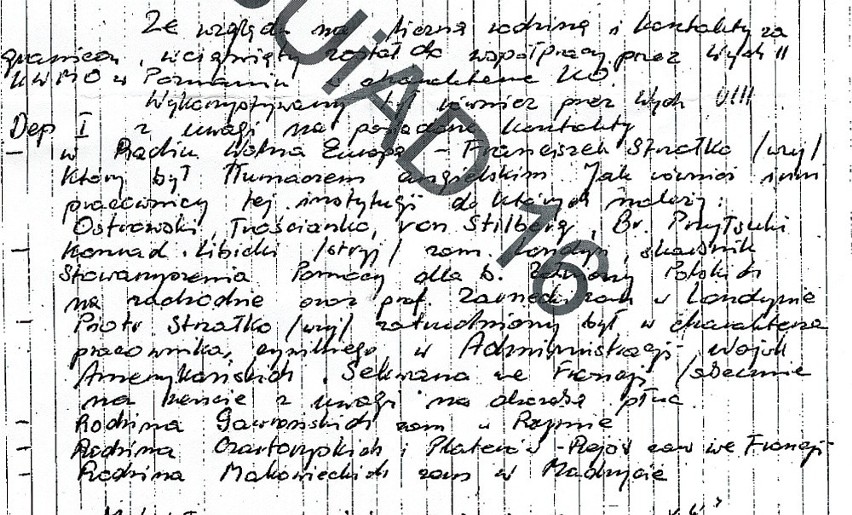 Ze względu na liczną rodzinę i kontakty za
granicą, wciągnięty został do współpracy przez Wydz II
KWMO w Poznaniu w charakterze KO.
Wykorzystywany był również przez Wydz VIII
Dep I z uwagi na posiadane kontakty
- w Radiu Wolna Europa - Franciszek Strzałko /wuj/
który był tłumaczem angielskim. Jak również inni
pracownicy tej instytucji do których należą:
Ostrowski, Trościanko, von Stilberg, Br. Przyłuski
- Konrad Libicki /stryj/ zam. Londyn, skarbnik
Stowarzyszenia Pomocy dla b. Żołnierzy Polskich
na zachodzie oraz prof. Zarnecki zam w Londynie
- Piotr Strzałko /wuj/ zatrudniony był w charakterze
pracownika cywilnego w Administracji Wojsk
Amerykańskich. Sekwana we Francji /obecnie
na rencie z uwagi na chorobę płuc.
- Rodzina Gawrońskich zam w Rzymie
- Rodzina Czartoryskich i Platerów - zam we Francji
- Rodzina Makowieckich zam w Madrycie
16